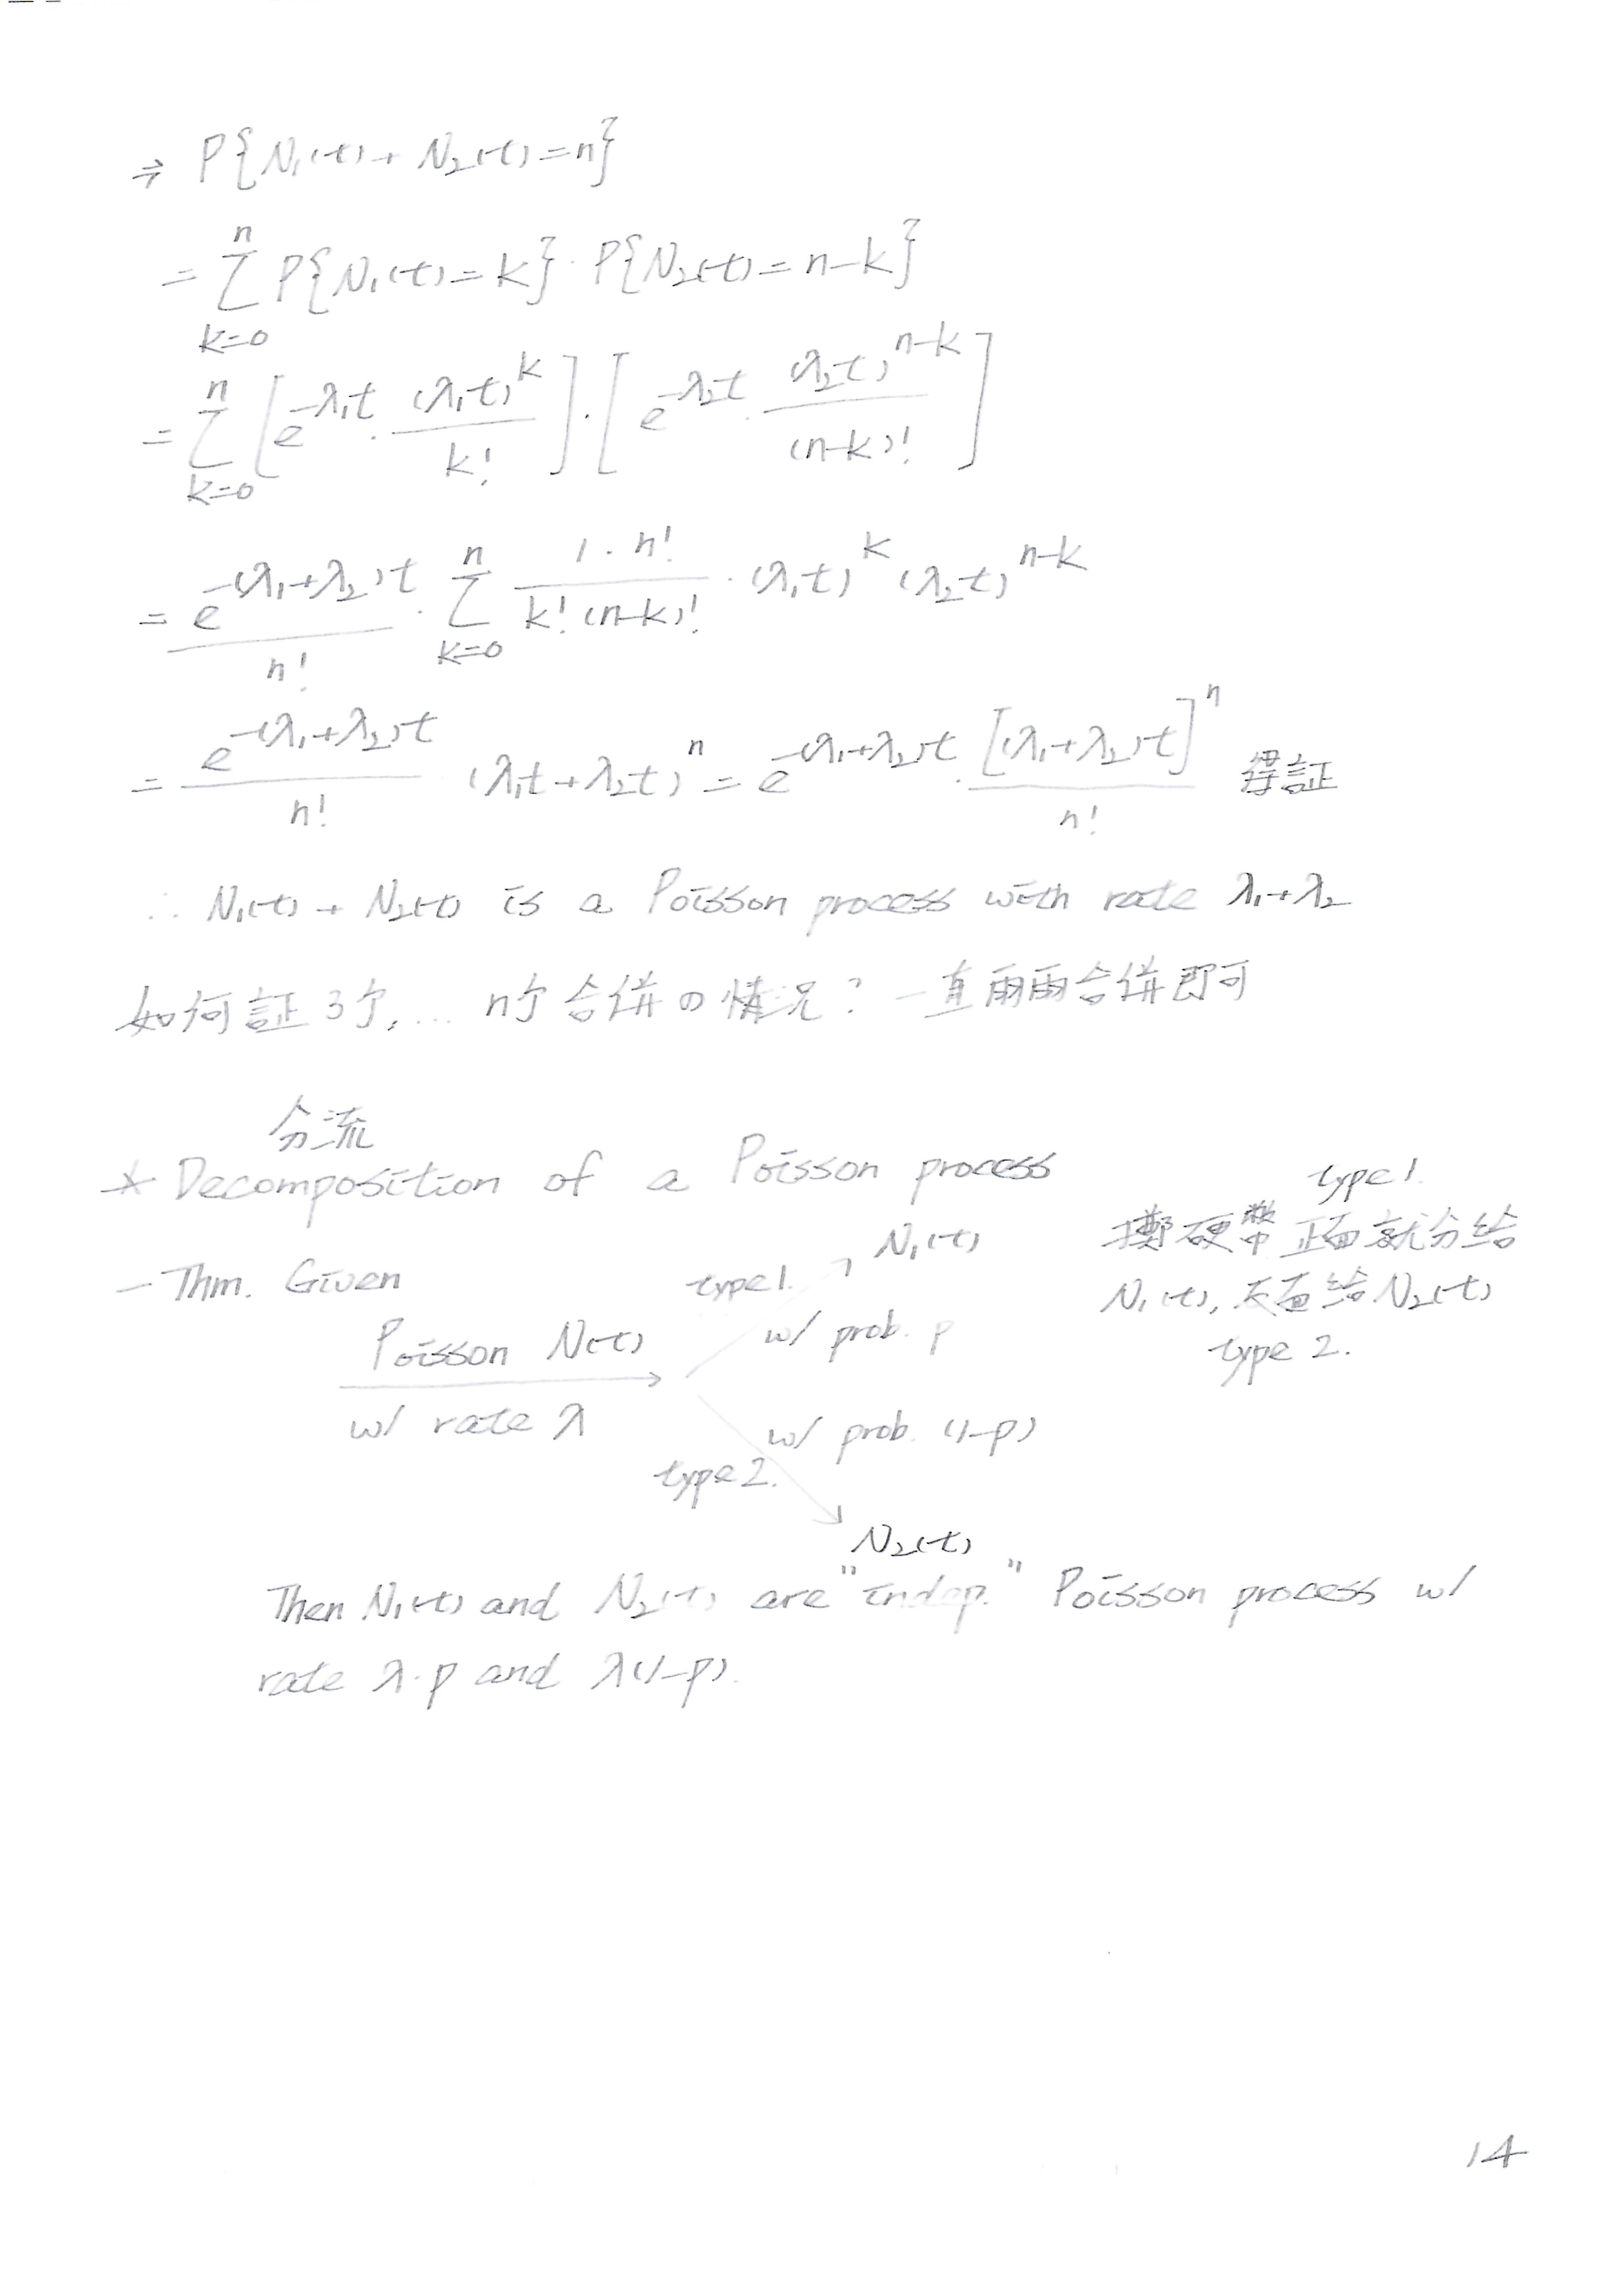 ⇒ P{N₁(t) + N₂(t) = n}
= Σ_{k=0}^{n} P{N₁(t) = k} · P{N₂(t) = n-k}
= Σ_{k=0}^{n} [e^{-λ₁t} · (λ₁t)^k / k!] · [e^{-λ₂t} · (λ₂t)^{n-k} / (n-k)!]
= e^{-(λ₁+λ₂)t} / n! · Σ_{k=0}^{n} 1·n! / k!(n-k)! · (λ₁t)^k (λ₂t)^{n-k}
= e^{-(λ₁+λ₂)t} / n! (λ₁t + λ₂t)^n = e^{-(λ₁+λ₂)t} · [(λ₁+λ₂)t]^n / n! 得証
∴ N₁(t) + N₂(t) is a Poisson process with rate λ₁+λ₂
如何証3个, ... n个合併の情況? 一直兩兩合併即可
分流
* Decomposition of a Poisson process
- Thm. Given
Poisson N(t)
w/ rate λ
type 1. N₁(t)
w/ prob. p
w/ prob. (1-p)
type 2.
N₂(t)
type 1.
擲硬幣 正面就分給
N₁(t), 反面給N₂(t)
type 2.
Then N₁(t) and N₂(t) are "indep." Poisson process w/
rate λ·p and λ(1-p).
14